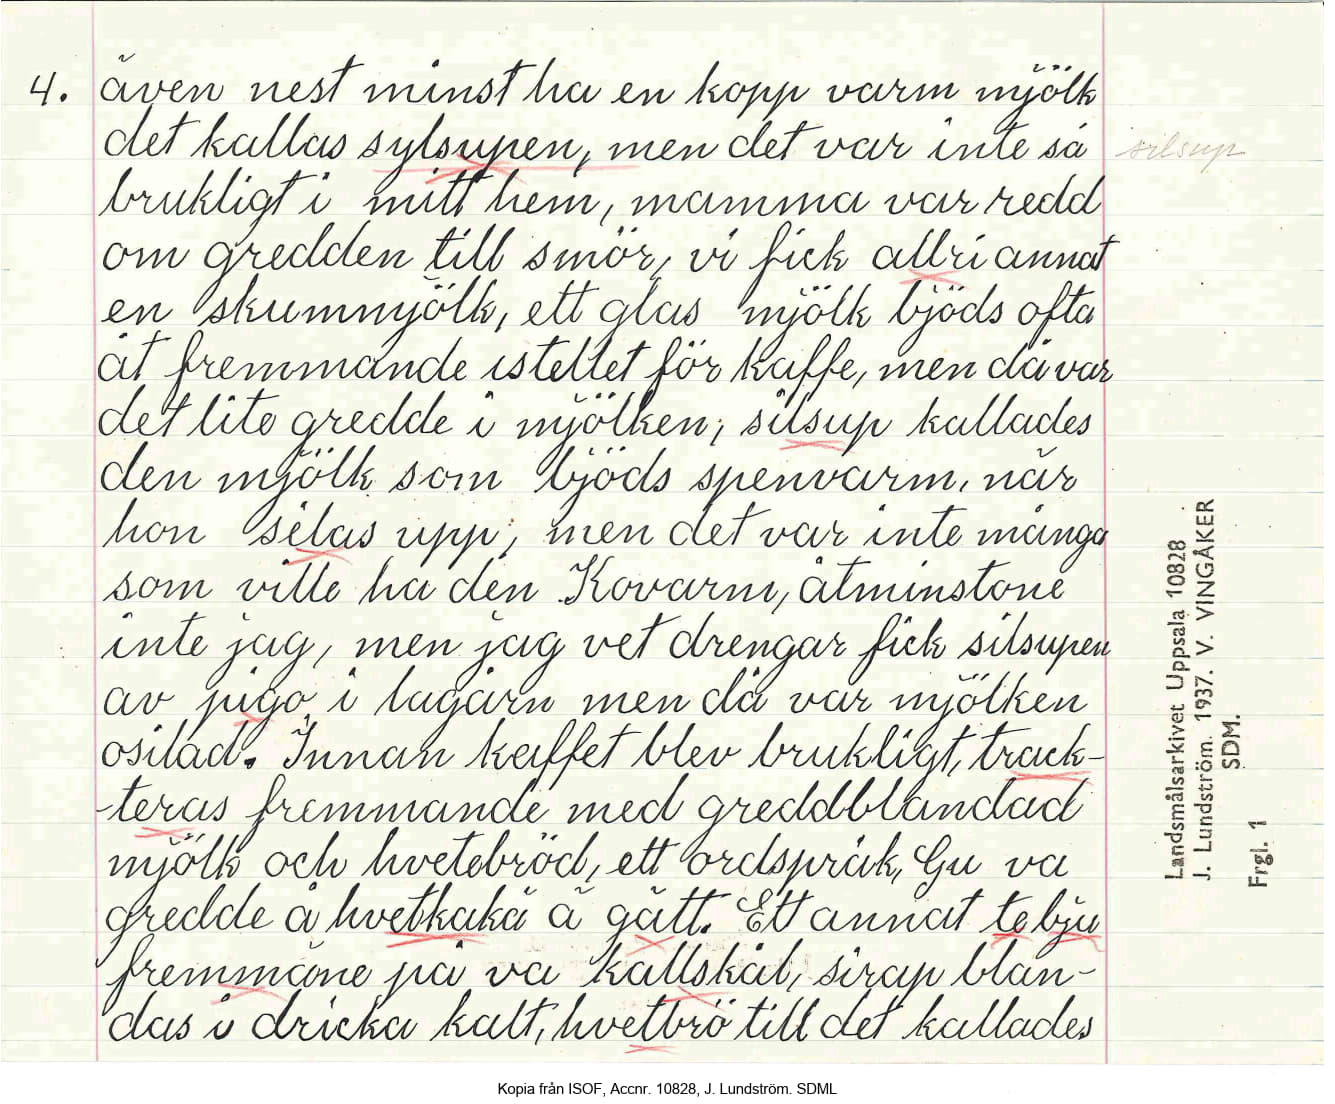 4. även nest minst ha en kopp varm mjölk
det kallas sylsupen, men det var inte så
silsup
brukligt i mitt hem, mamma var redd
om gredden till smör, vi fick allri annat
en skummjölk, ett glas mjölk bjöds ofta
åt fremmande istellet för kaffe, men då var
det lite gredde i mjölken, silsup kallades
den mjölk som bjöds spenvarm, når
hon silas upp, men det var inte många
som ville ha den Kovarm, åtminstone
inte jag, men jag vet drengar fick silsupen
av pigo i lagårn men då var mjölken
osilad. Innan kaffet blev brukligt, track-
-teras fremmande med greddblandad
mjölk och hvetebröd, ett ordspråk, Gu va
gredde å hvetkaka ä gått. Ett annat te bju
fremmåne på va kallskål, sirap blan-
das i dricka kalt, hvetbrö till det kallades
Landsmålsarkivet Uppsala 10828
J. Lundström. 1937. V. VINGÅKER
SDM.
Frgl. 1
Kopia från ISOF, Accnr. 10828, J. Lundström. SDML